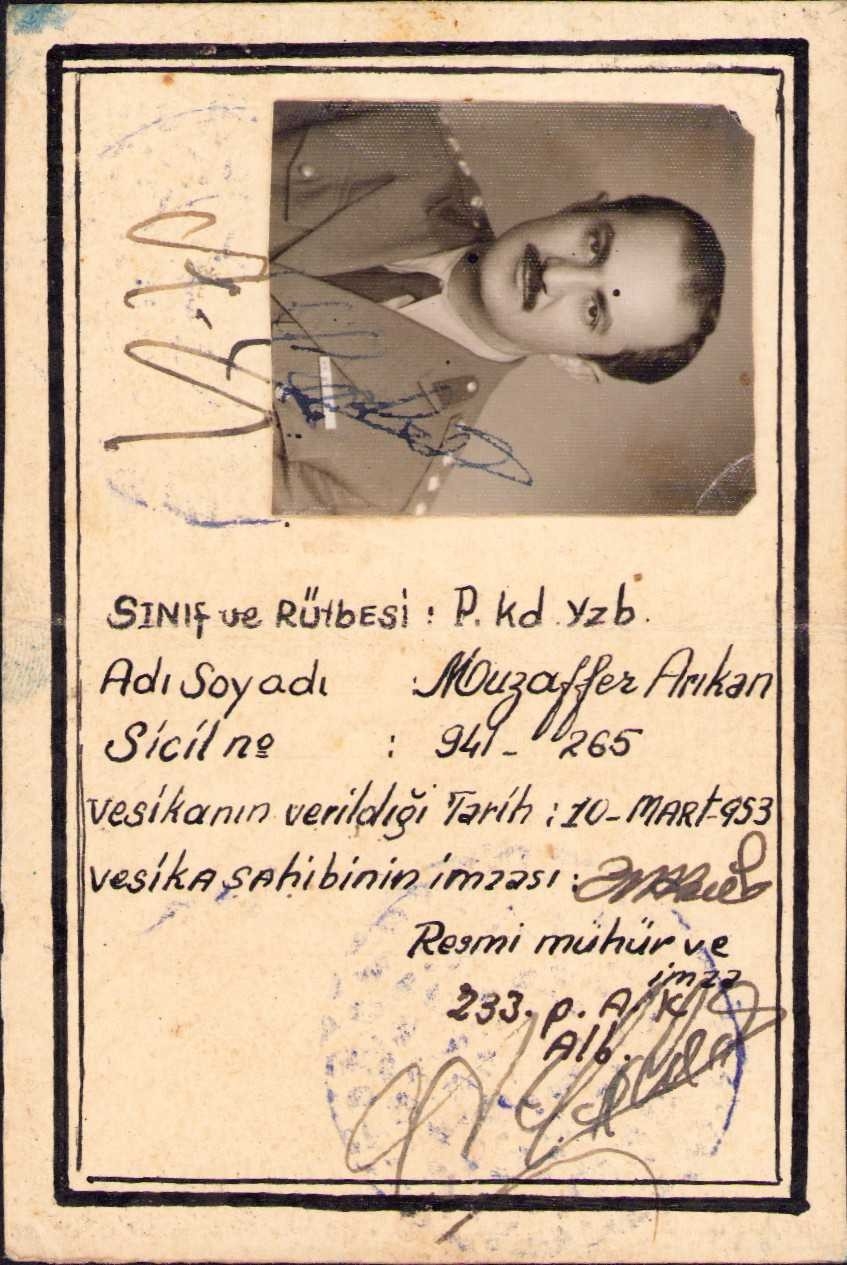 SINIf ve RÜtbESİ : P. kd yzb.
Adı Soyadı : Muzaffer Arıkan
Sicil nº : 941- 265
vesikanın verildiği Tarih : 10-MARt-953
vesika sahibinin imzası :
Resmi mühür ve
imza
233. p. A. K
Alb.